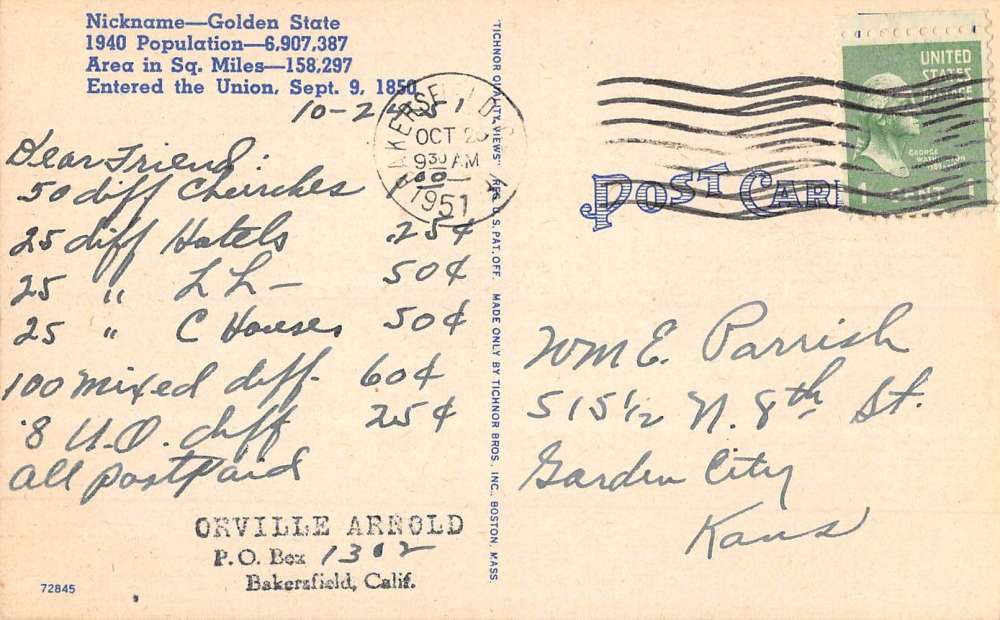 Nickname—Golden State
1940 Population—6,907,387
Area in Sq. Miles—158,297
Entered the Union, Sept. 9, 1850
10-2
Dear Friend:
50 diff Churches
25 diff Hotels .25¢
25 " L L— 50¢
25 " C Houses 50¢
100 mixed diff. 60¢
8 U.O. diff 25¢
all postpaid
ORVILLE ARNOLD
P.O. Box 1302
Bakersfield, Calif.
72845
BAKERSFIELD
OCT
9 30 AM
1951
"TICHNOR QUALITY VIEWS" REG. U. S. PAT. OFF. MADE ONLY BY TICHNOR BROS., INC., BOSTON, MASS.
UNITED
STATES
GEORGE
1 1
POST CARD
Wm E. Parrish
515½ N. 8th St.
Garden City
Kans